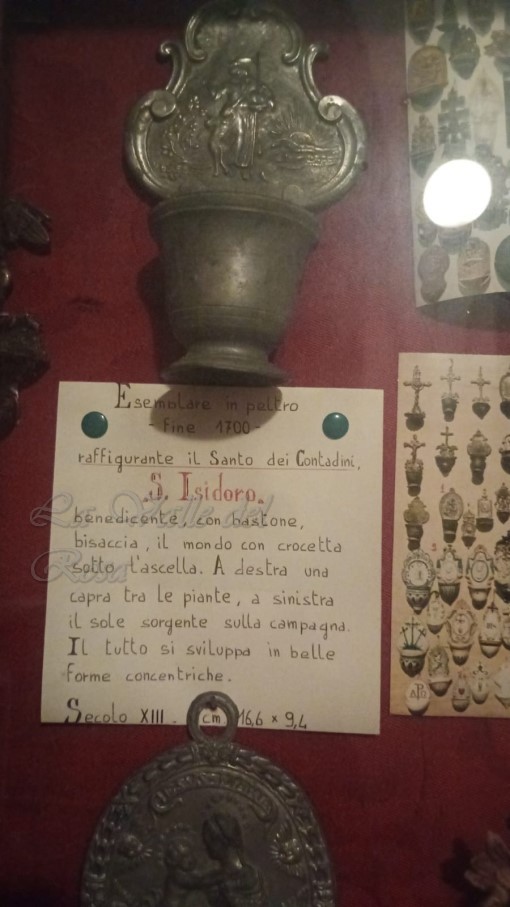 Esemplare in peltro
- fine 1700 -
raffigurante il Santo dei Contadini,
S. Isidoro,
benedicente, con bastone,
bisaccia, il mondo con crocetta
sotto l'ascella. A destra una
capra tra le piante, a sinistra
il sole sorgente sulla campagna.
Il tutto si sviluppa in belle
forme concentriche.
Secolo XIII - cm 16,6 x 9,4
La Valle del